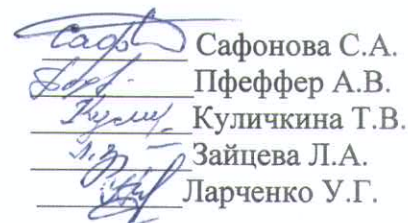 Сафонова С.А.
Пфеффер А.В.
Куличкина Т.В.
Зайцева Л.А.
Ларченко У.Г.